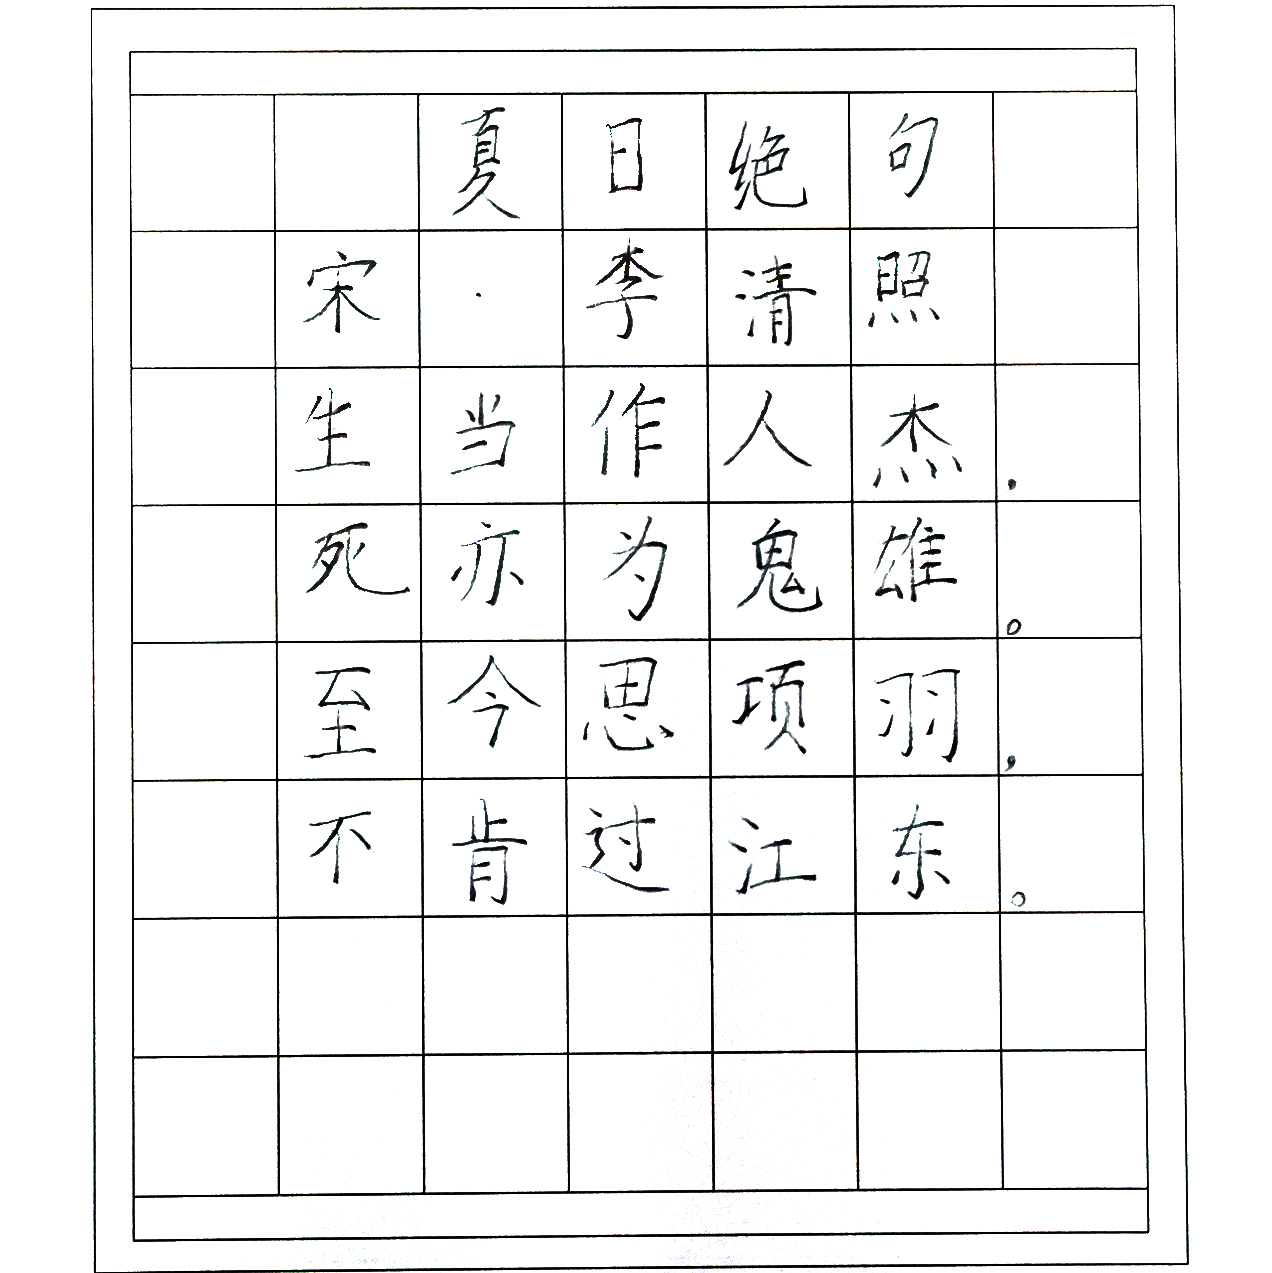 夏日绝句
宋·李清照
生当作人杰.
死亦为鬼雄。
至今思项羽,
不肯过江东。